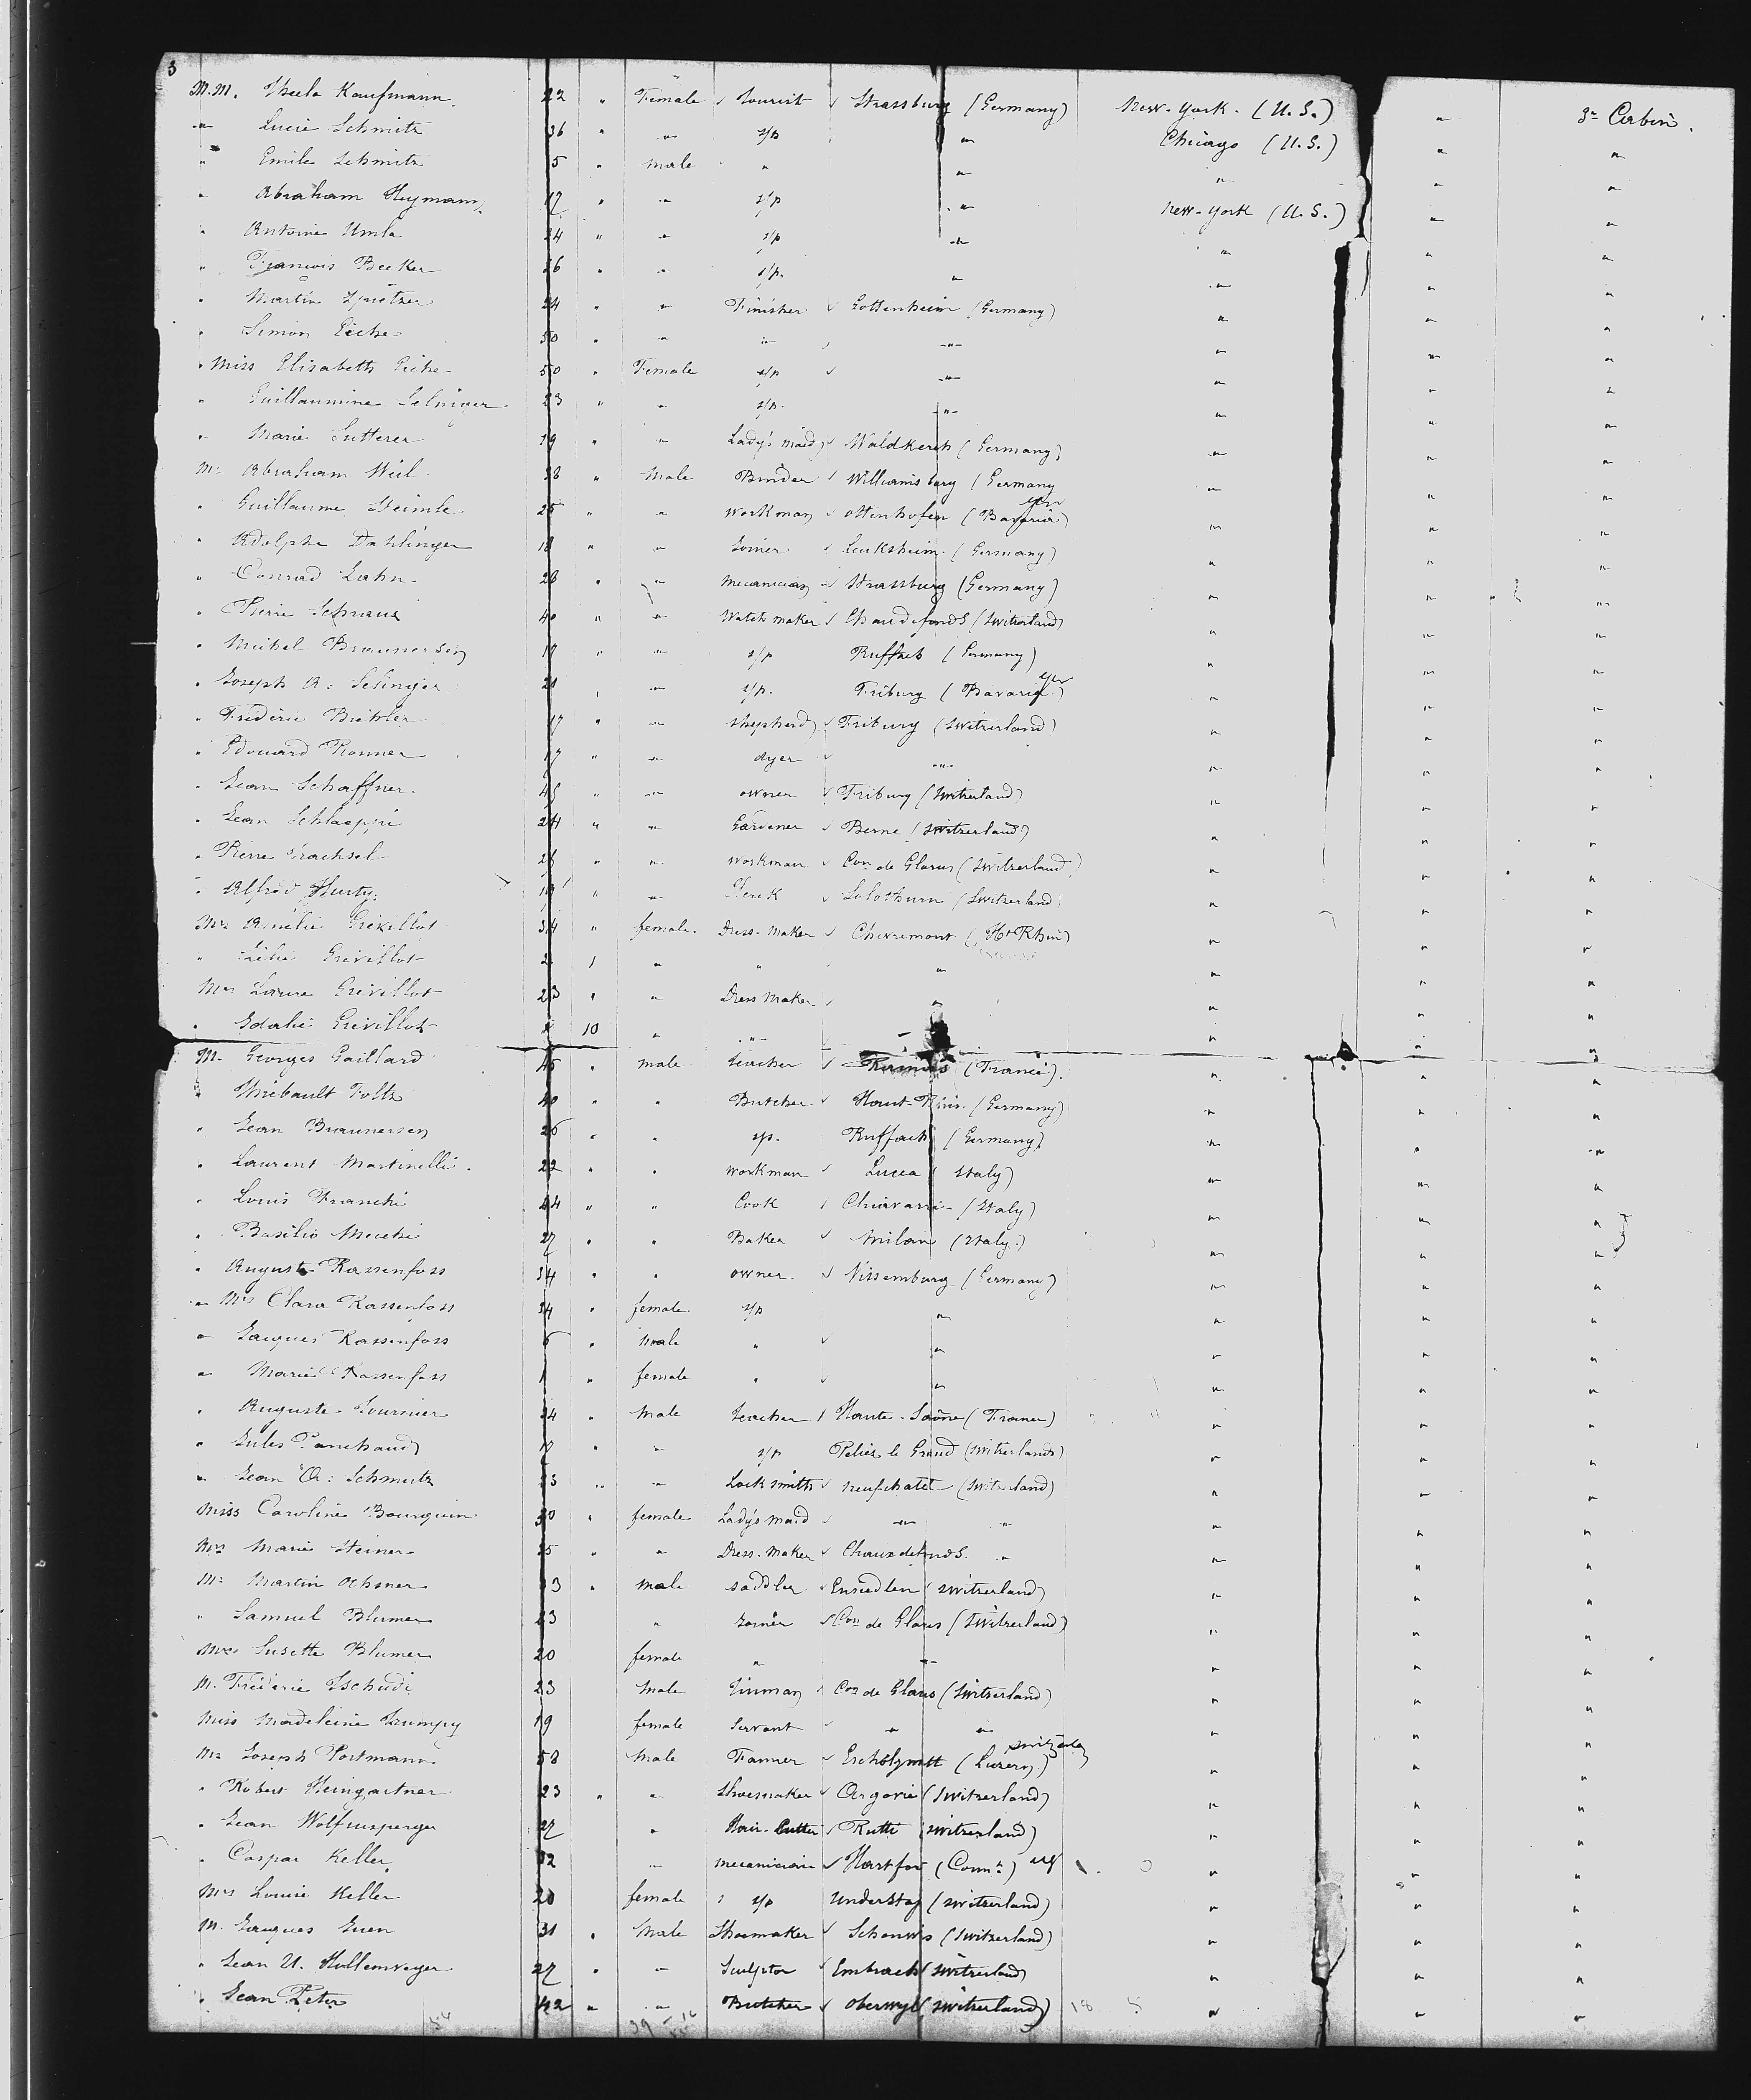 3
M.M. Theela Kaufmann 22 " Female tourist Strassburg (Germany) New-York. (U.S.) " 3e Cabin.
" Lucie Schmitz 36 " " s/p " Chicago (U.S.) " "
" Emile Schmitz 5 " male " " " " "
" Abraham Heymann 17 " " s/p " New-York (U.S.) " "
" Antoine Umla 24 " " s/p " " " "
" François Becker 26 " " s/p. " " " "
" Martin 24 " " Finisher Gottenheim (Germany) " " "
" Simon Eiche 50 " " " " " " "
" Miss Elisabeth Eiche 50 " Female s/p " " " "
" Guillaumine Selinger 23 " " s/p. " " " "
" Marie Sutterer 19 " " Lady's maid Waldkerch (Germany) " " "
Mr Abraham Weil 38 " Male Binder Williamsburg (Germany " " "
" Guillaume Heimle 25 " " Workman Ottenhofen (Bavaria) Ger " " "
" Adolphe Dahlinger 18 " " Joiner Leuksheim (Germany) " " "
" Conrad Lahn 28 " " mecanician Strassburg (Germany) " " "
" Pierre Schraus 40 " " Watch maker Chaudefonds (Switzerland) " " "
" Michel Braunersen 17 " " s/p Ruffach (Germany) " " "
" Joseph A. Selinger 21 " " s/p. Friburg (Bavaria) Ger " " "
" Fréderic 17 " " shepherd Friburg (Switzerland) " " "
" Edouard Ronner 17 " " dyer " " " "
" Jean Schaffner 45 " " owner Friburg (Switzerland) " " "
" Jean Schlaeppi 24 " " Gardener Berne (Switzerland) " " "
" Pierre Trachsel 26 " " Workman Con de Glarus (Switzerland) " " "
" Alfred Hurty 19 " " Clerk Solothurn (Switzerland) " " "
Mrs Amélie Grévillot 34 " female. Dress-maker Chevremont (Ht Rhin) " " "
" Grévillot 2 1 " " " " " "
Mrs Laure Grévillot 23 " " Dress Maker " " " "
" Idalie Grévillot 10 " " " " "
M. Georges Gaillard 45 " male teacher (France). " " "
" Thiébault Foltz 40 " " Butcher Haut-Rhin (Germany) " " "
" Jean Braunersen 26 " " s/p. Ruffach (Germany) " " "
" Laurent Martinelli 22 " " workman Lucca (Italy) " " "
" Louis Franchi 44 " " Cook Chiavari (Italy) " " "
" Basilio Mocchi 27 " " Baker Milan (Italy) " " "
" Auguste Kassenfoss 34 " " owner Nissemburg (Germany) " " "
" Mrs Clara Kassenfoss 34 " female s/p " " " "
" Jacques Kassenfoss 6 " male " " " " "
" Marie Kassenfoss 1 " female " " " " "
" Auguste Tournier 24 " Male teacher Haute-Saône (France) " " "
" Jules Panchaud 17 " " s/p Poliez le Grand (Switzerland) " " "
" Jean A. Schmutz 23 " " Locksmith Neufchatel (Switzerland) " " "
Miss Caroline Bourquin 30 " female Lady's maid " " " " "
Mrs Marie Steiner 25 " " Dress-maker Chaux de fonds. " " " "
Mr Martin Ochsner 23 " male saddler Ensiedlen (Switzerland) " " "
" Samuel Blumer 23 " Joiner Con de Glarus (Switzerland) " " "
Mrs Susette Blumer 20 female " " " " "
M. Fréderic Tschudi 23 Male Tinman Con de Glarus (Switzerland) " " "
Miss Madeleine Trumpy 19 female Servant " " " " "
Mr Joseph Portmann 58 Male Farmer Escholzmatt (Luzern) Switzerland " " "
" Robert Heingartner 23 " " Shoemaker Argovie (Switzerland) " " "
" Jean Wolfensperger 27 " Hair-Cutter Rutti (Switzerland) " " "
" Caspar Keller 32 " mecanician Hartford (Connt) " " "
Mrs Louise Keller 20 female s/p Understag (Switzerland) " " "
M. Jacques Guen 31 " Male Shoemaker Schonwis (Switzerland) " " "
" Jean U. Hollenweger 27 " " Sculptor Embrach (Switzerland) " " "
" Jean Peter 42 " " Butcher Oberwyl (Switzerland) 18 5 " " "
54 39